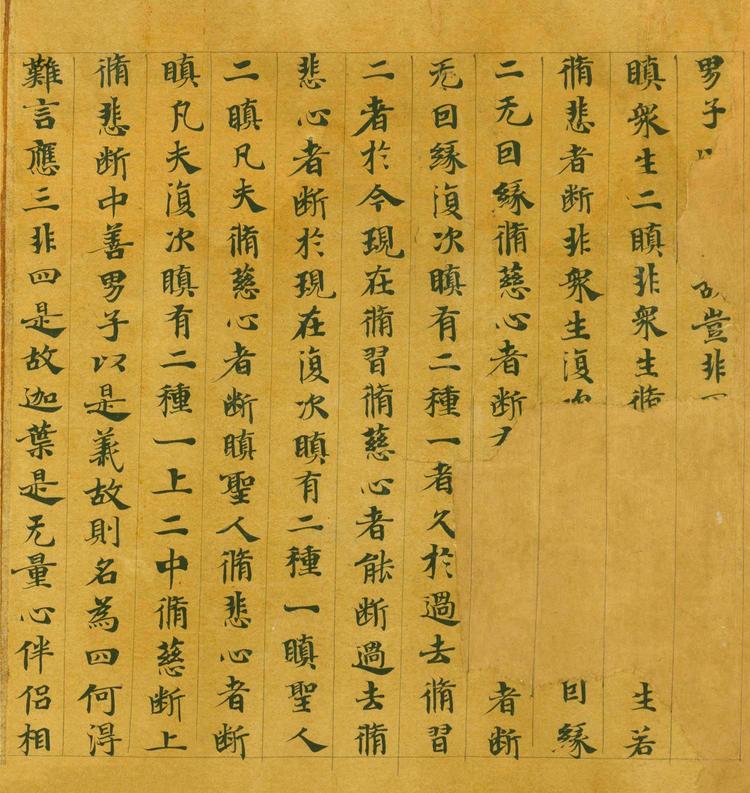 男子 豈非
瞋衆生二瞋非衆生脩 生若
脩悲者断非衆生復 囙縁
二无囙縁脩慈心者断 者断
无囙縁復次瞋有二種一者久於過去脩習
二者於今現在脩習脩慈心者能断過去脩
悲心者断於現在復次瞋有二種一瞋聖人
二瞋凡夫脩慈心者断瞋聖人脩悲心者断
瞋凡夫復次瞋有二種一上二中脩慈断上
脩悲断中善男子以是義故則名為四何淂
難言應三非四是故迦葉是无量心伴侶相